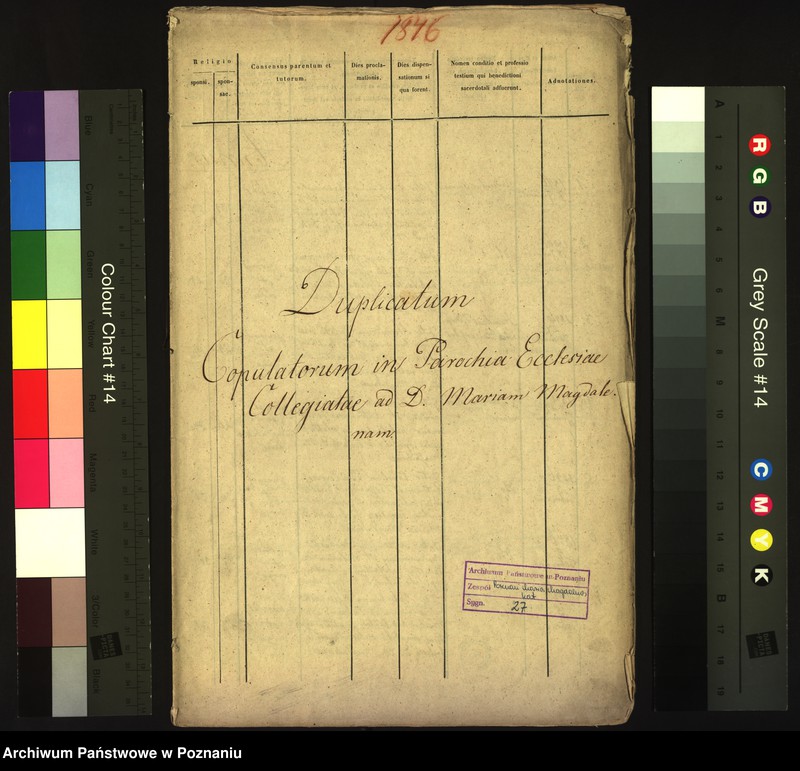 1846
Religio
sponsi.
spon-
sae.
Consensus parentum et
tutorum.
Dies procla-
mationis.
Dies dispen-
sationum si
qua forent.
Nomen conditio et professio
testium qui benedictioni
sacerdotali adfuerunt.
Adnotationes.
Duplicatum
Copulatorum in Parochia Ecclesiae
Collegiatae ad D. Mariam Magdale-
nam.
Archiwum Państwowe w Poznaniu
Zespół Poznań Maria Magdalena
kat
Sygn. 27
Colour Chart #14
Blue
Cyan
Green
Yellow
Red
Magenta
White
3/Color
Black
Grey Scale #14
R
G
B
C
M
Y
K
A
1
2
3
4
5
6
M
8
9
10
11
12
13
14
15
B
17
18
19
Archiwum Państwowe w Poznaniu